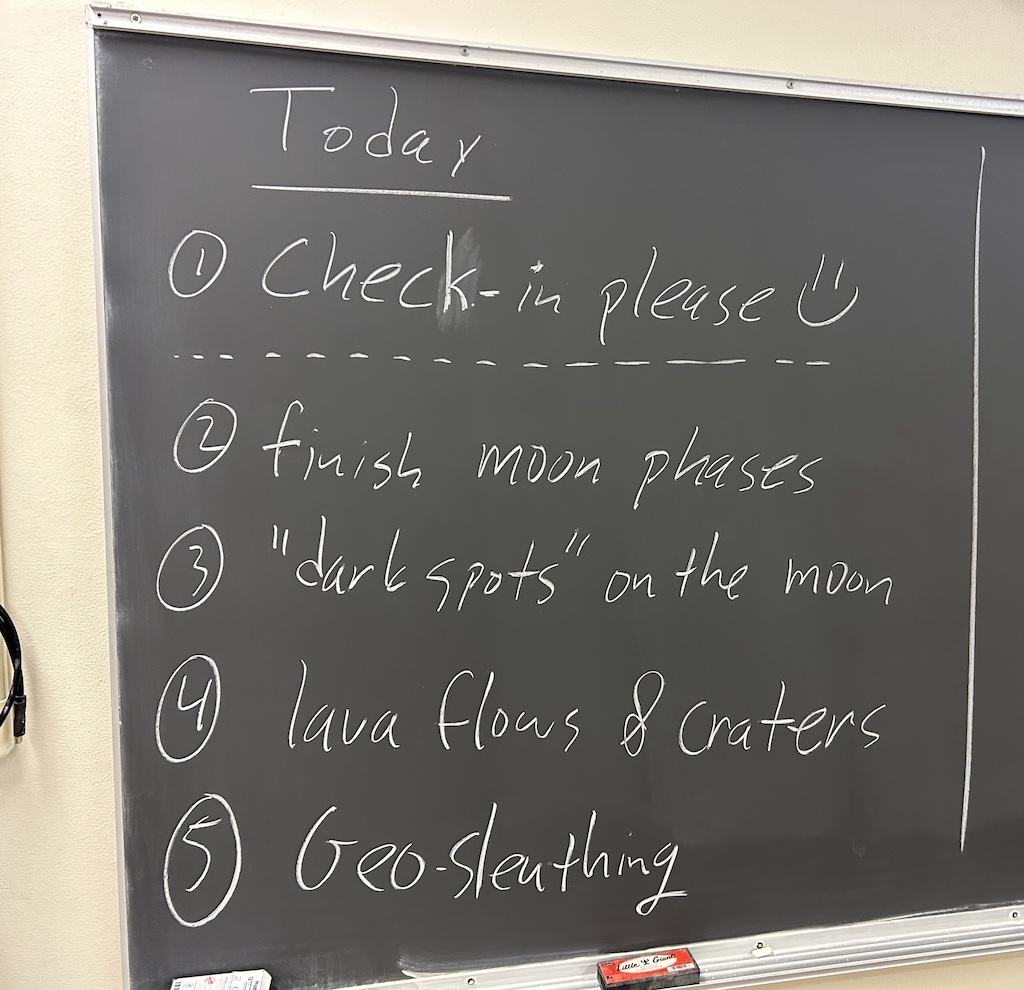 Today
① Check-in please
② finish moon phases
③ "dark spots" on the moon
④ lava flows & craters
⑤ Geo-sleuthing
Little Giant